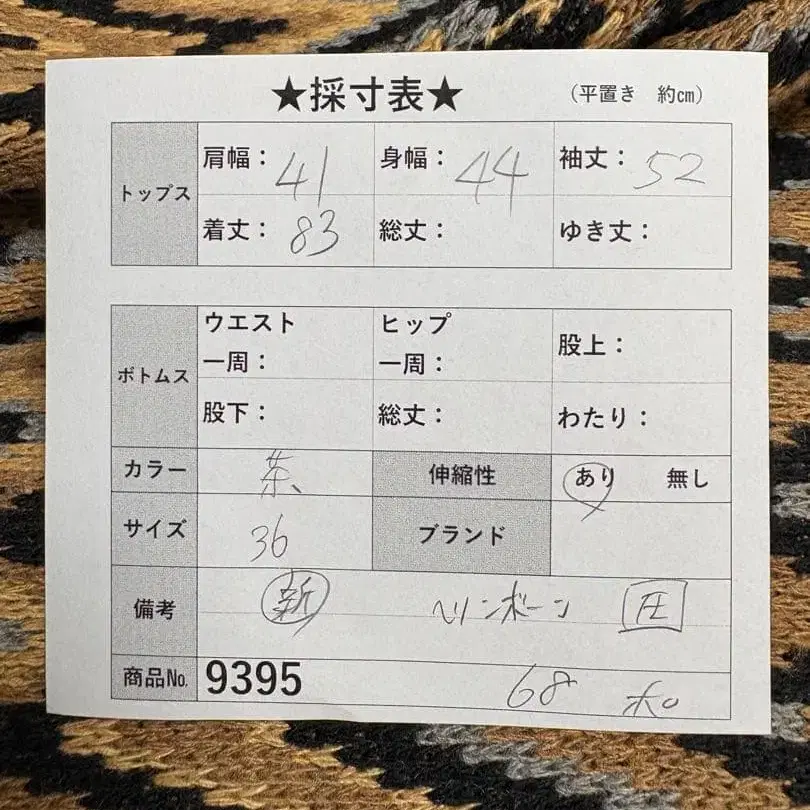 ★採寸表★ (平置き 約㎝)
トップス 肩幅：41 身幅：44 袖丈：52
着丈：83 総丈： ゆき丈：
ボトムス ウエスト一周： ヒップ一周： 股上：
股下： 総丈： わたり：
カラー 茶 伸縮性 あり 無し
サイズ 36 ブランド
備考 新 ヘリンボーン 圧
商品№ 9395 68